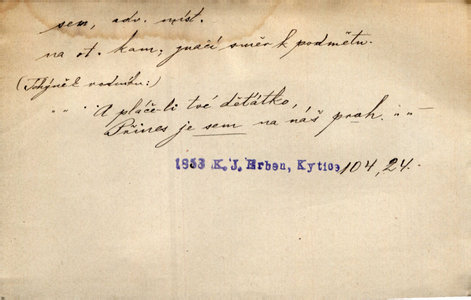 sem, adv. míst.
na ot. kam, značí směr k podmětu.
( vodníku:)
„ „ A pláče-li tvé děťátko,
Přines je sem na náš prah. „ “
1853 K. J. Erben, Kytice 104, 24.